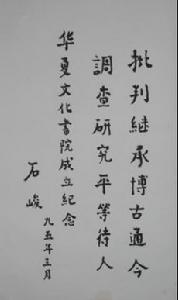 批判继承博古通今
调查研究平等待人
华夏文化书院成立纪念
石峻
九五年三月